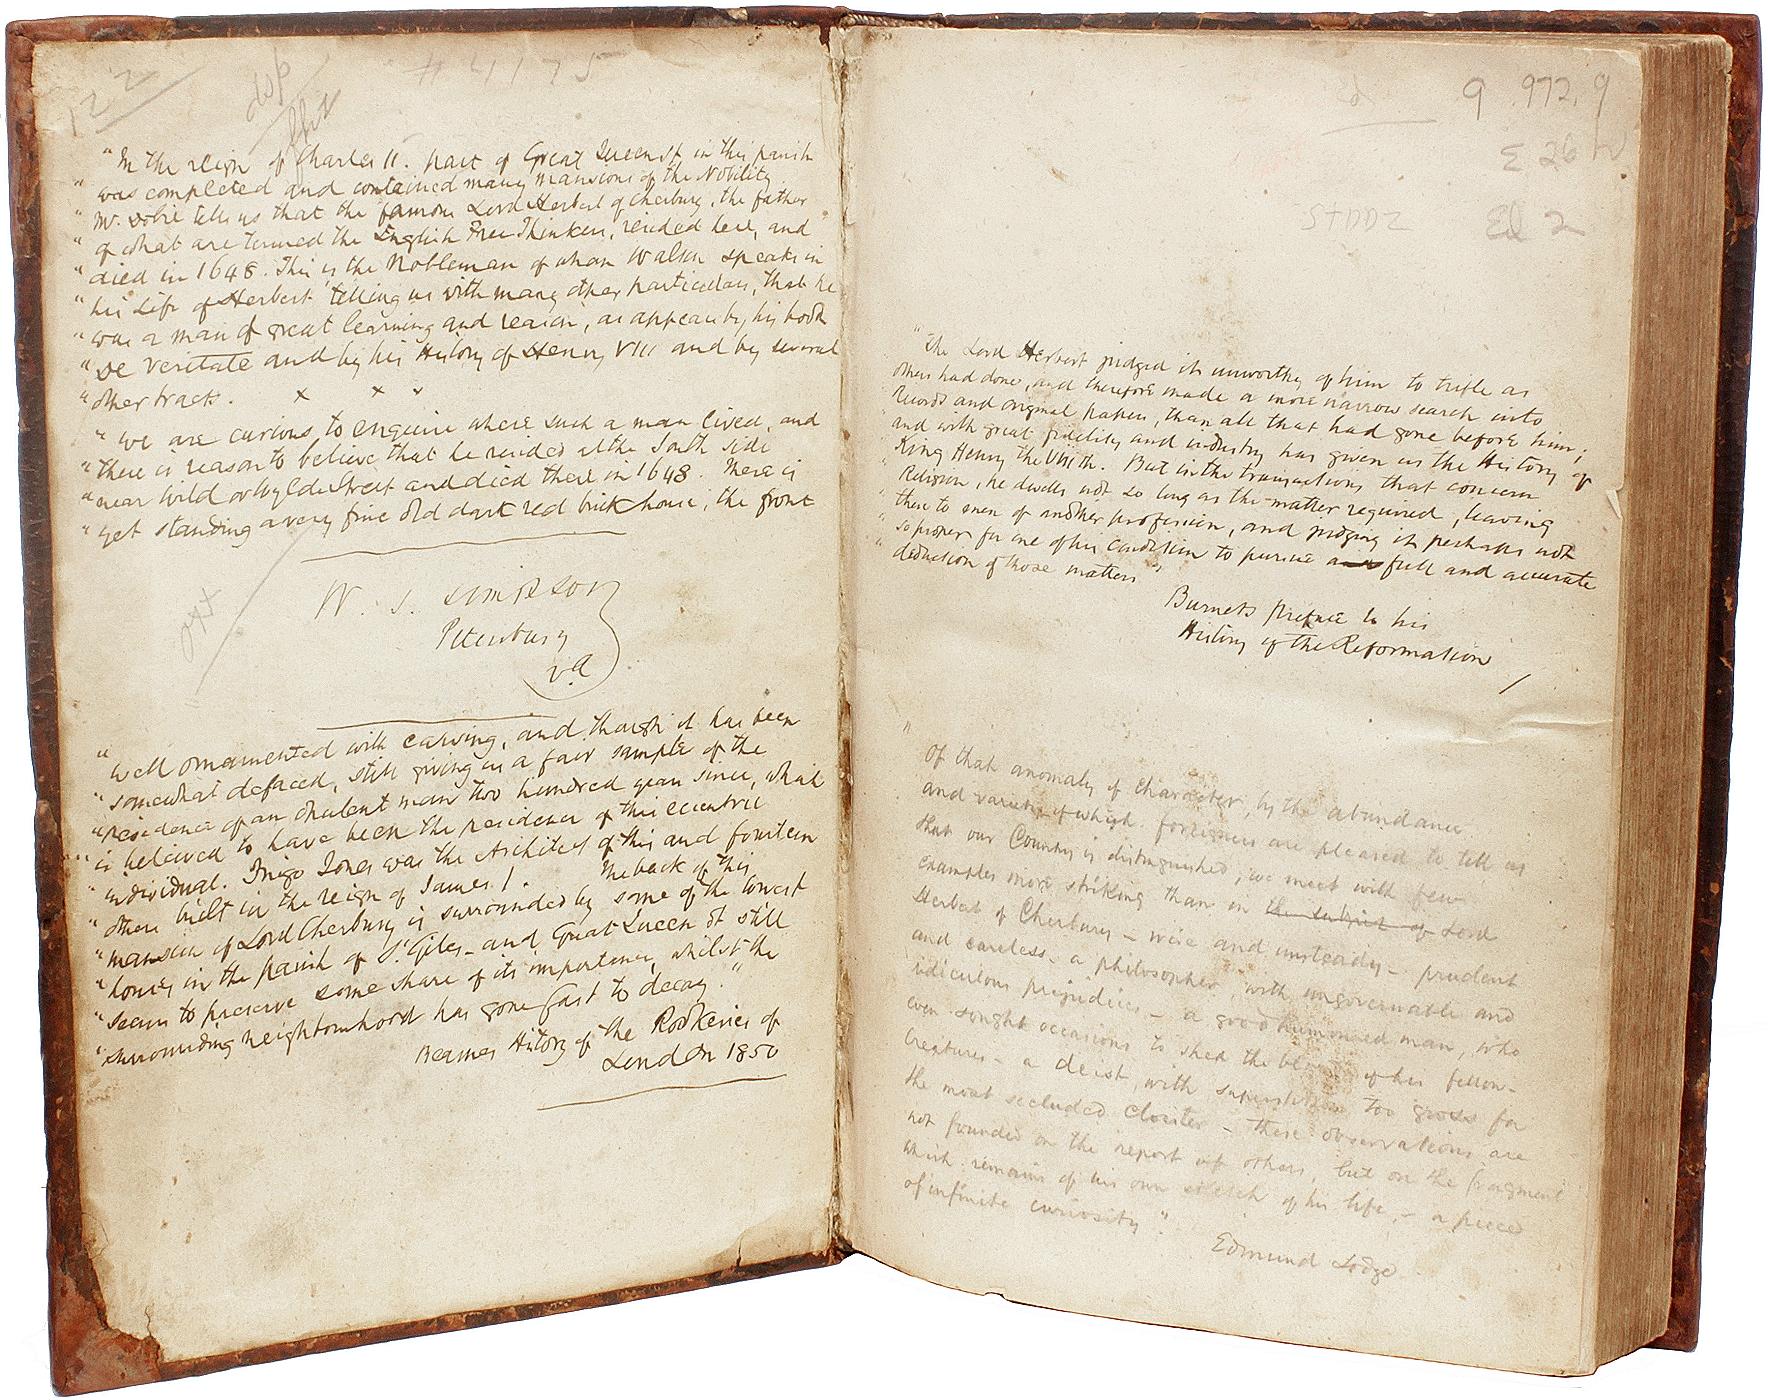 122
# 4175
"In the reign of Charles II. part of Great Queen St. in this parish
" was completed and contained many mansions of the Nobility.
" Mr. Dobie tells us that the famous Lord Herbert of Cherbury, the father
" of what are termed the English Free Thinkers, resided here, and
" died in 1648. This is the Nobleman of whom Walton speaks in
" his Life of Herbert telling us with many other particulars, that he
" was a man of great learning and reason, as appears by his book
" De Veritate and by his History of Henry VIII and by several
" other tracts. x x x
" We are curious to enquire where such a man lived, and
" there is reason to believe that he resided at the South side
" near Wild or Wylde Street and died there in 1648. There is
" yet standing a very fine old dark red brick house, the front
W. S. Simpson
Petersburg
Va
" well ornamented with carving, and though it has been
" somewhat defaced, still giving us a fair sample of the
" residence of an opulent man two hundred years since, which
" is believed to have been the residence of this eccentric
" individual. Inigo Jones was the Architect of this and fourteen
" others built in the reign of James I. The back of this
" mansion of Lord Cherbury is surrounded by some of the lowest
" houses in the parish of St. Giles - and Great Queen St still
" seems to preserve some share of its importance, whilst the
" surrounding neighbourhood has gone fast to decay."
Beames History of the Rookeries of
London 1850
9 972.9
E 26
Ed 2
"The Lord Herbert judged it unworthy of him to trifle as
others had done, and therefore made a more narrow search into
Records and original papers, than all that had gone before him;
and with great fidelity and industry has given us the History of
King Henry the VIIIth. But in the transactions that concern
Religion, he dwells not so long as the matter required, leaving
these to men of another profession, and judging it perhaps not
so proper for one of his condition to pursue a full and accurate
deduction of those matters"
Burnets preface to his
History of the Reformation
"Of that anomaly of character, by the abundance
and variety of which foreigners are pleased to tell us
that our Country is distinguished, we meet with few
examples more striking than in the subject of Lord
Herbert of Cherbury - wise and unsteady - prudent
and careless - a philosopher, with ungovernable and
ridiculous prejudices - a good humoured man, who
even sought occasions to shed the blood of his fellow-
creatures - a deist, with superstition too gross for
the most secluded cloister - these observations are
not founded on the report of others, but on the fragment
which remains of his own sketch of his life, - a piece
of infinite curiosity"
Edmund Lodge